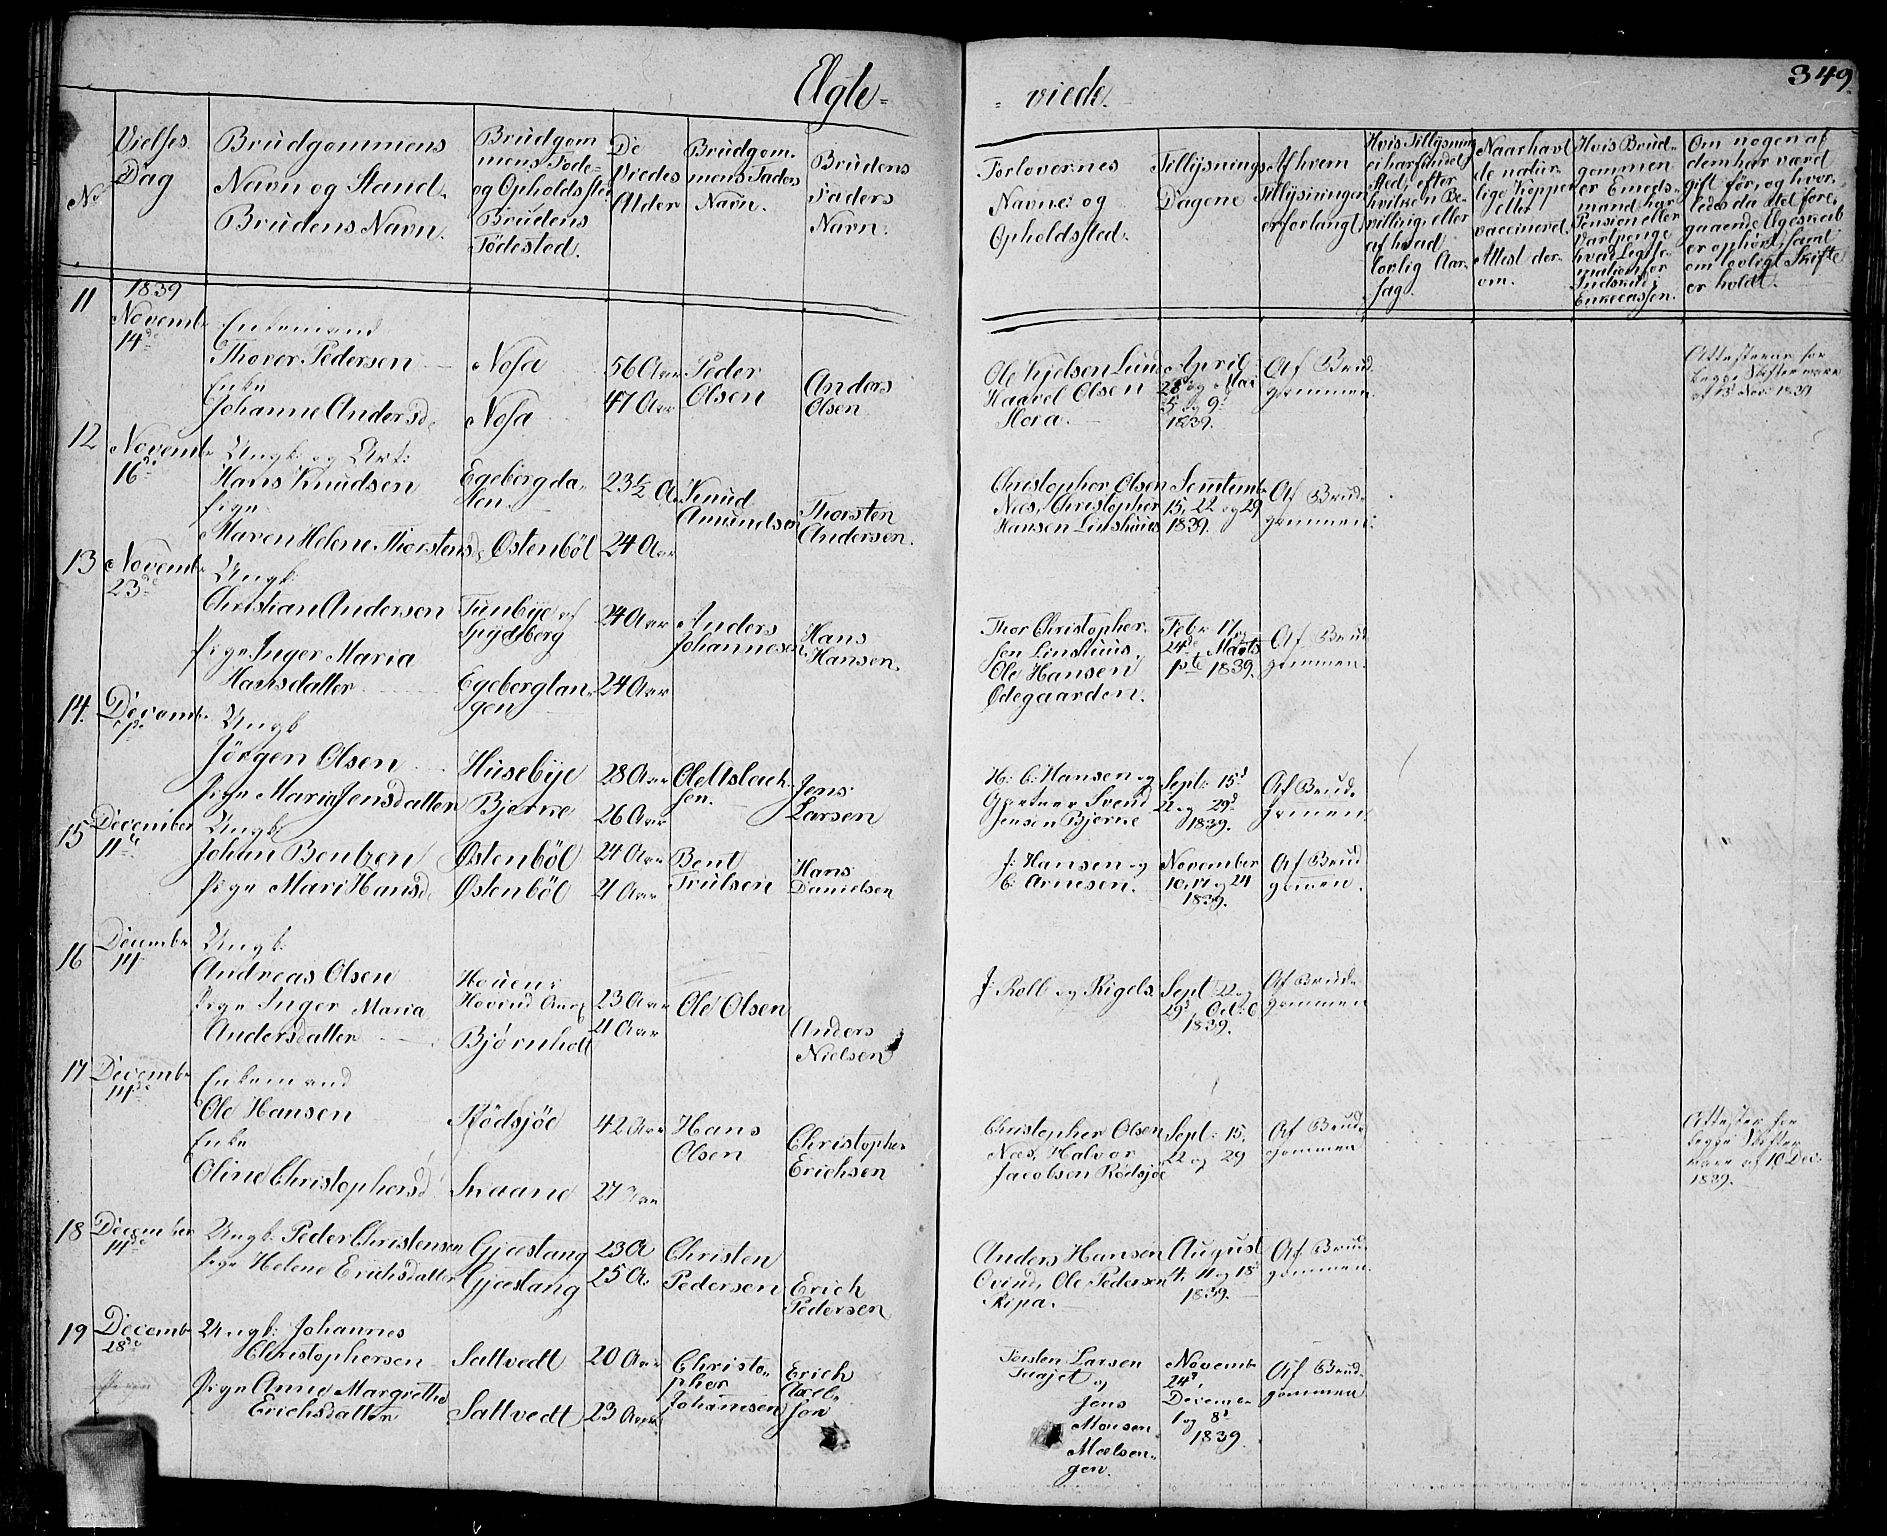 Ægte=
= viede.
349.
No
Vielses
Dag
Brudgommens
Navn og Stand.
Brudens Navn.
Brudgom
mens Føde-
og Opholdssted
Brudens
Födested.
De
Viedes
Alder
Brudgom.
mens Faders
Navn.
Brudens
Faders
Navn.
Forlovernes
Navne og
Opholdssted.
Tillysnings
Dagene
Af hvem
Tillysninger
er forlangt
Hvis Tillysning
ei har fundet
Sted, efter
hvilken Be-
villing, eller
af hvad
lovlig Aar-
sag.
Naar havt
de natur-
lige Kopper
eller
vaccinered.
Attest der-
om.
Hvis Brud-
gommen
er Eneds-
mand, har
Pension eller
Vartpenge
hvad Legiti-
mation for
Indskud i
Enkecassen.
Om nogen af
dem har værd
gift før, og hvor-
ledes da det fore-
gaaende Ægteskab
er ophørt, samt
om lovligt Skifte
er holdt.
11
1839
Novemb
14de
Enkemand
Thorer Pedersen
Enke
Johanne Andersd.
Nosa
Nosa
56 Aar
47 Aar
Peder
Olsen
Anders
Olsen
Ole Kjelsen Lund
Haavel Olsen
Hora.
April
28d og Mai
5 og 9d
1839.
Af Brud
gommen.
Attester for
begge Skifter
af 13 Nov: 1839
12
Novemb
16de
Ungk: og Art:
Hans Knudsen
Pige
Maren Helene Thorstensd.
Egebergda-
len
Østenböl
23 1/2 A
24 Aar
Knud
Amundsen
Thorsten
Andersen.
Christopher Olsen
Næs, Christopher
Hansen Linshuus
Septemb
15, 22 og 29
1839.
Af Brud-
gommen:
13
Novemb
23de
Ungk:
Christian Andersen
Pige Inger Maria
Hansdatter
Tunbye af
Spydberg
Egeberglan-
gen
24 Aar
24 Aar
Anders
Johannesen
Hans
Hansen.
Thor Christopher
sen Linshuus,
Ole Hansen
Ødegaarden.
Febr 17 og
24de Marts
1ste 1839.
Af Brud
gommen.
14.
Decemb
7de
Ungk
Jörgen Olsen
Pige Maria Jensdatter
Husebye
Bjerke
28 Aar
26 Aar
Ole Aslach
sen.
Jens
Larsen
H: C: Hansen og
Gartner Svend
Jensen Bjerke
Sept: 15d
22 og 29d
1839.
Af Brud-
gommen
15
December
11te
Ungk:
Johan Bentzen
Pige Mari Hansd.
Østenböl
Østenböl
24 Aar
21 Aar
Bent
Trulsen
Hans
Danielsen
J: Hansen og
C: Arnesen.
November
10, 17 og 24
1839.
Af Brud
gommen.
16
Decemb
14
Ungk:
Andreas Olsen
Pige Inger Maria
Andersdatter
Bjørnholt
23 Aar
21 Aar
Ole Olsen
Anders
Nielsen
J: Roll og Rigels
Sept 22 og
29d, Oct: 6
1839.
Af Brud-
gommen
17
Decemb
14de
Enkemand
Ole Hansen
Enke
Oline Christophersd.
Rödsjöe
Skaane
42 Aar
27 Aar
Hans
Olsen
Christopher
Erichsen
Christopher Olsen
Næs, Halvor
Jacobsen Rödsjöe
Sept: 15,
22 og 29
Af Brud-
gommen
Attester for
begge Skifter
af 10 Dec:
1839.
18
December
14de
Ungk. Peder Christensen
Pige Helene Erichsdatter
Gjæstang
Gjæstang
23 A
25 A.
Christen
Pedersen
Erich
Pedersen
Anders Hansen
Ovind, Ole Pedersen
Ripa.
August
4, 11 og 18d
1839.
Af Brud
gommen
19
Decemb
28de
Ungk: Johannes
Christophersen
Pige Anne Margrethe
Erichsdatter
Saltvedt
Saltvedt
20 Aar
23 Aar
Christo-
pher
Johannesen
Erich
Axel-
sen
Torsten Larsen
og
Jens
Monsen
Mælsen-
gen.
Novemb
24d,
Decemb
1 og 8d
1839.
Af Brud
gommen